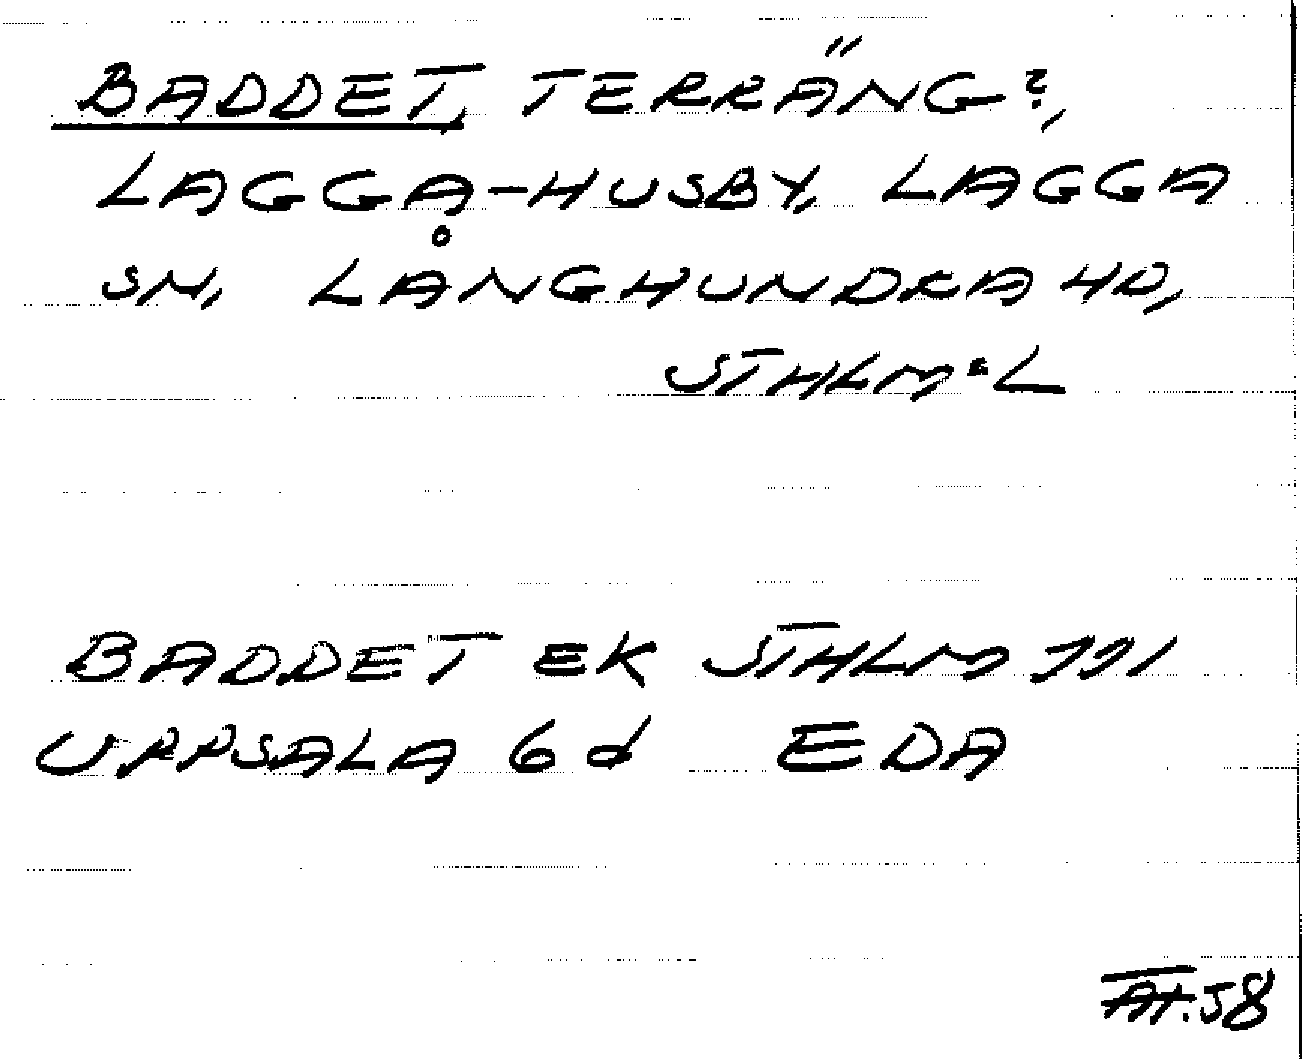 BADDET, TERRÄNG?,
LAGGA-HUSBY, LAGGA
SN, LÅNGHUNDRA HD,
STHLMS L
BADDET EK STHLM 111
UPPSALA 6d EDA